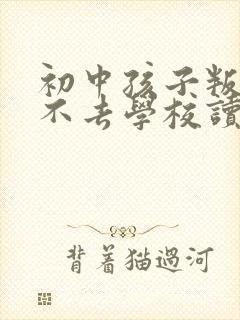 初中孩子叛
不去學校讀
背着猫過河